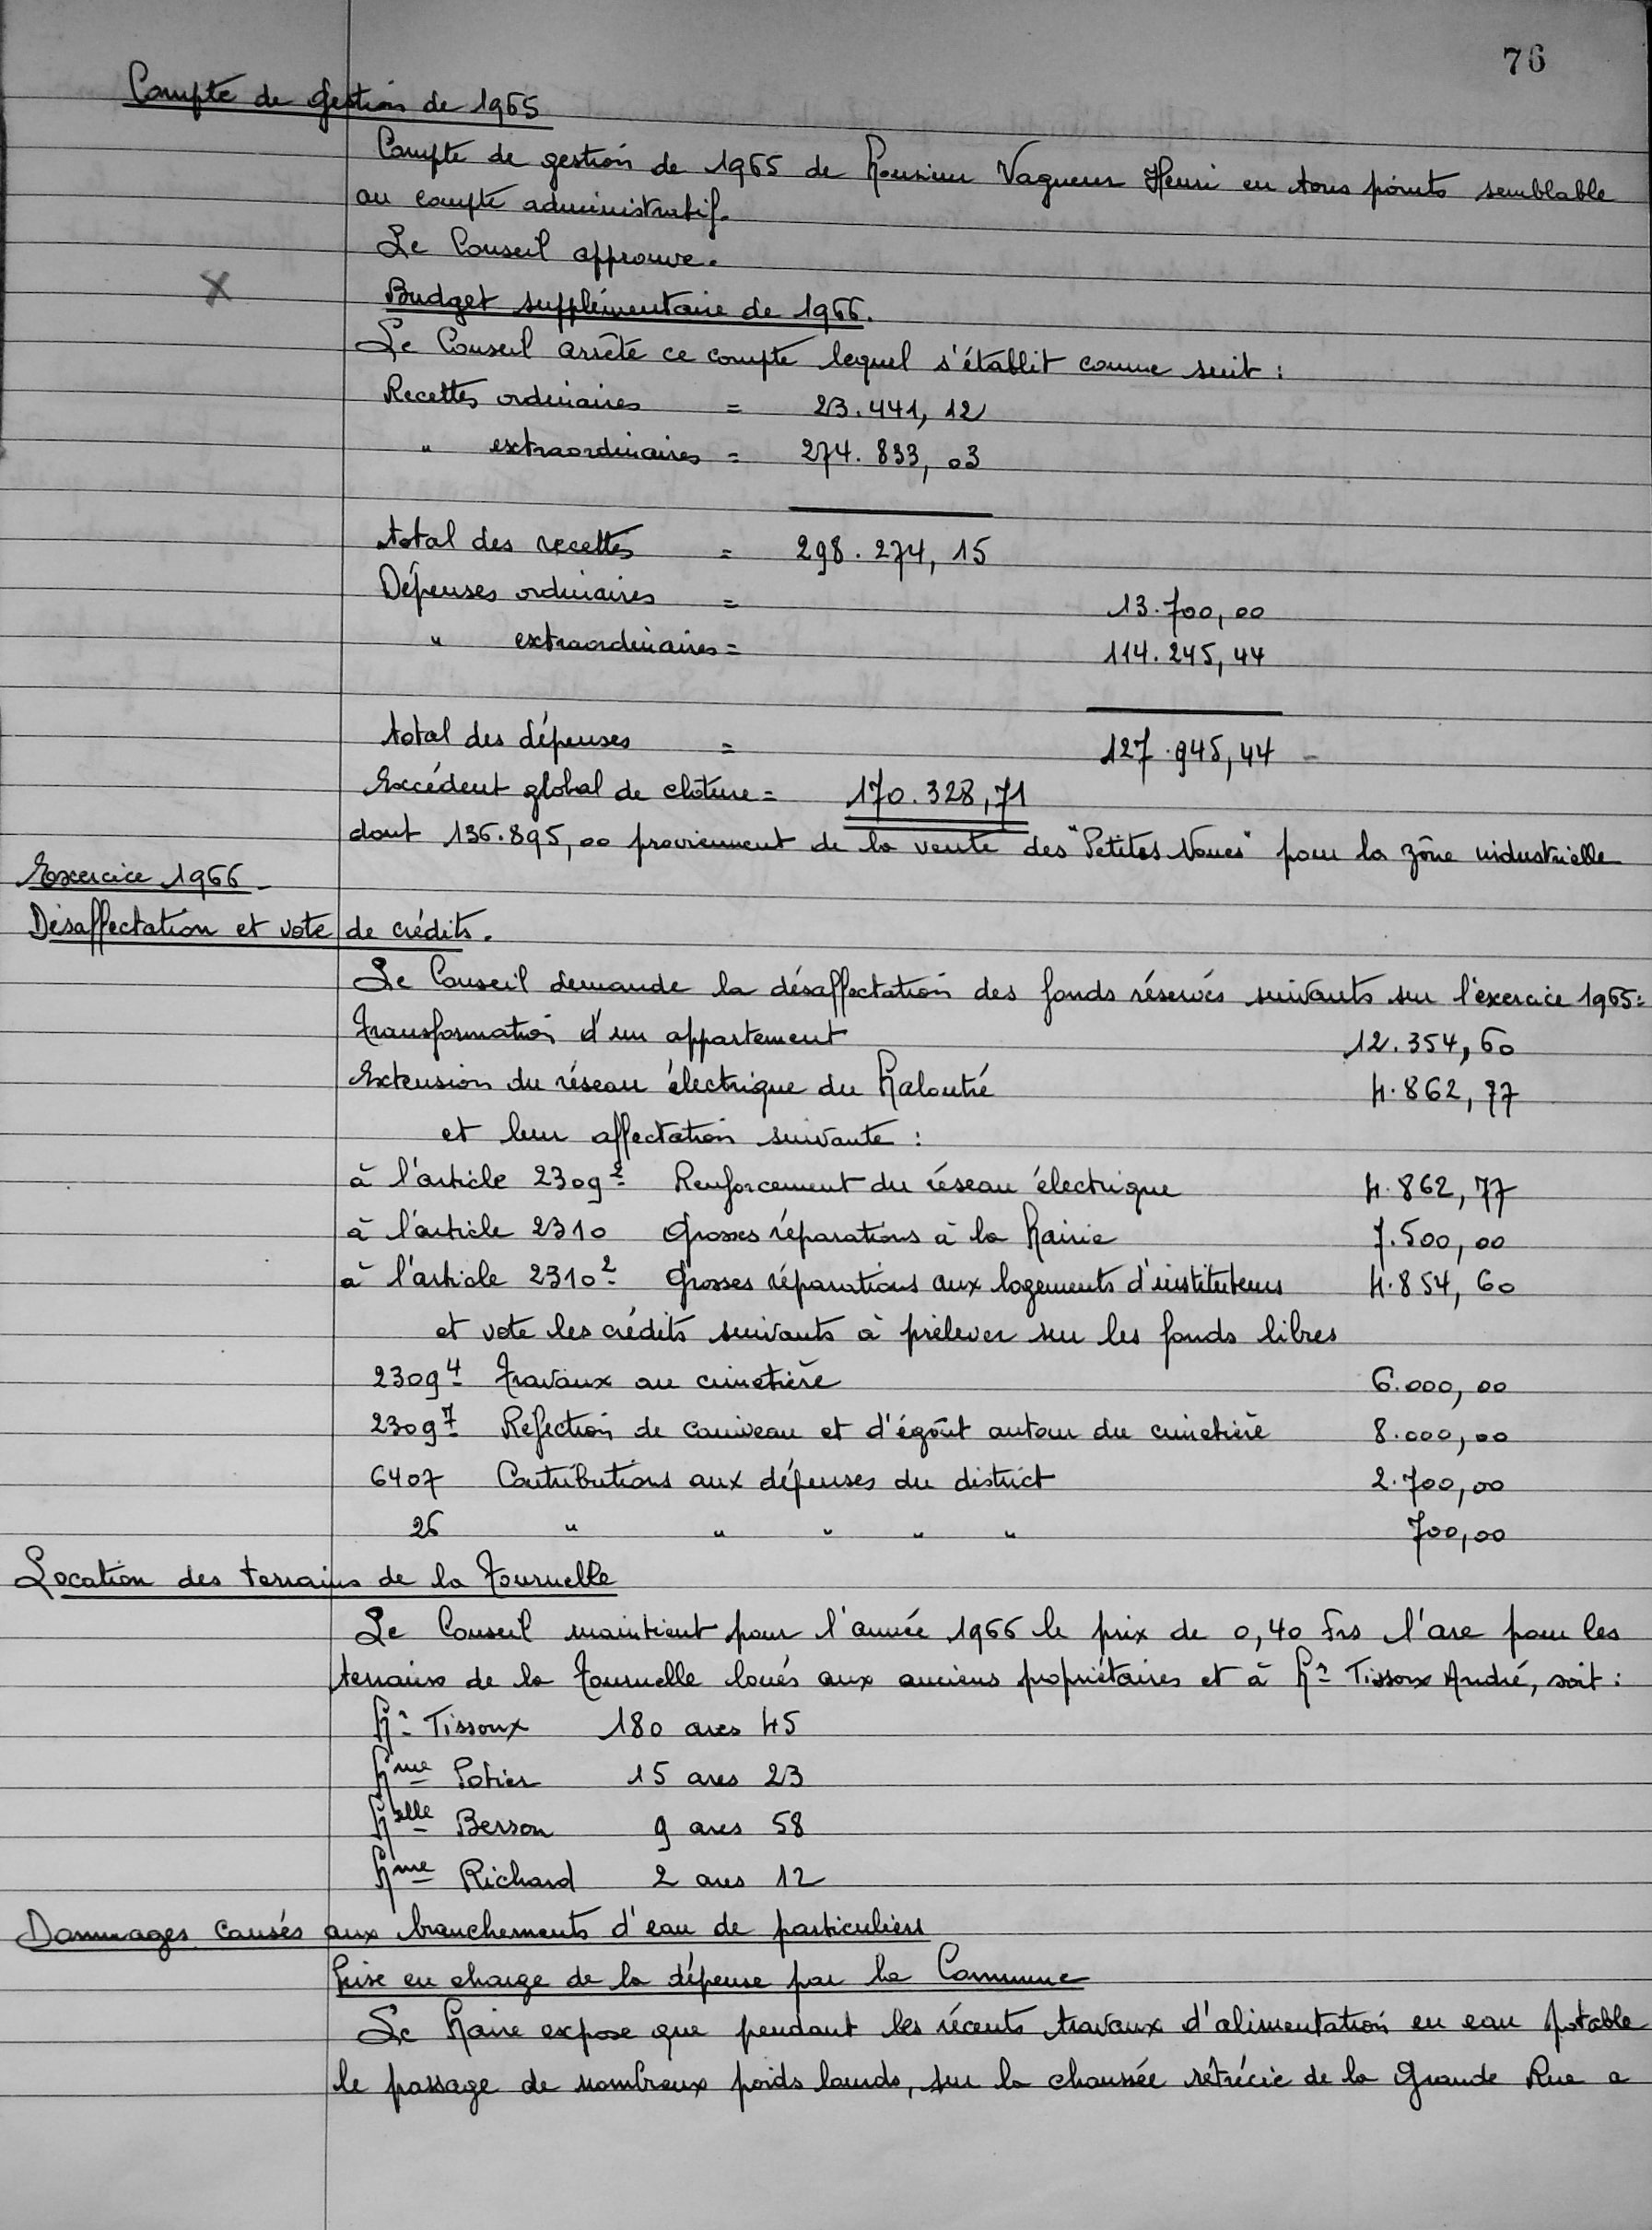 76
Compte de gestion de 1965
Compte de gestion de 1965 de Monsieur Vagueur Henri en tous points semblable
au compte administratif.
Le Conseil approuve.
X
Budget supplémentaire de 1966.
Le Conseil arrête ce compte lequel s'établit comme suit :
Recettes ordinaires = 23.441,12
" extraordinaires = 274.833,03
total des recettes = 298.274,15
Dépenses ordinaires = 13.700,00
" extraordinaires = 114.245,44
total des dépenses = 127.945,44
Excédent global de cloture = 170.328,71
dont 136.895,00 proviennent de la vente des "Petites Noues" pour la zône industrielle
Exercice 1966
Désaffectation et vote de crédits.
Le Conseil demande la désaffectation des fonds réservés suivants sur l'exercice 1965:
Transformation d'un appartement 12.354,60
Extension du réseau électrique du Maloutié 4.862,77
et leur affectation suivante :
à l'article 2309² Renforcement du réseau électrique 4.862,77
à l'article 2310 Grosses réparations à la Mairie 7.500,00
à l'article 2310² Grosses réparations aux logements d'instituteurs 4.854,60
et vote les crédits suivants à prélever sur les fonds libres
2309⁴ Travaux au cimetière 6.000,00
2309⁷ Refection de caniveau et d'égoût autour du cimetière 8.000,00
6407 Contributions aux dépenses du district 2.700,00
26 " " " " " 700,00
Location des terrains de la Tournelle
Le Conseil maintient pour l'année 1966 le prix de 0,40 frs l'are pour les
terrains de la Tournelle loués aux anciens propriétaires et à Mr Tissoux André, soit :
Mr Tissoux 180 ares 45
Mme Potier 15 ares 23
Melle Berson 9 ares 58
Mme Richard 2 ares 12
Dommages causés aux branchements d'eau de particuliers
Prise en charge de la dépense par la Commune
Le Maire expose que pendant les récents travaux d'alimentation en eau potable
le passage de nombreux poids lourds, sur la chaussée rétrécie de la Grande Rue a